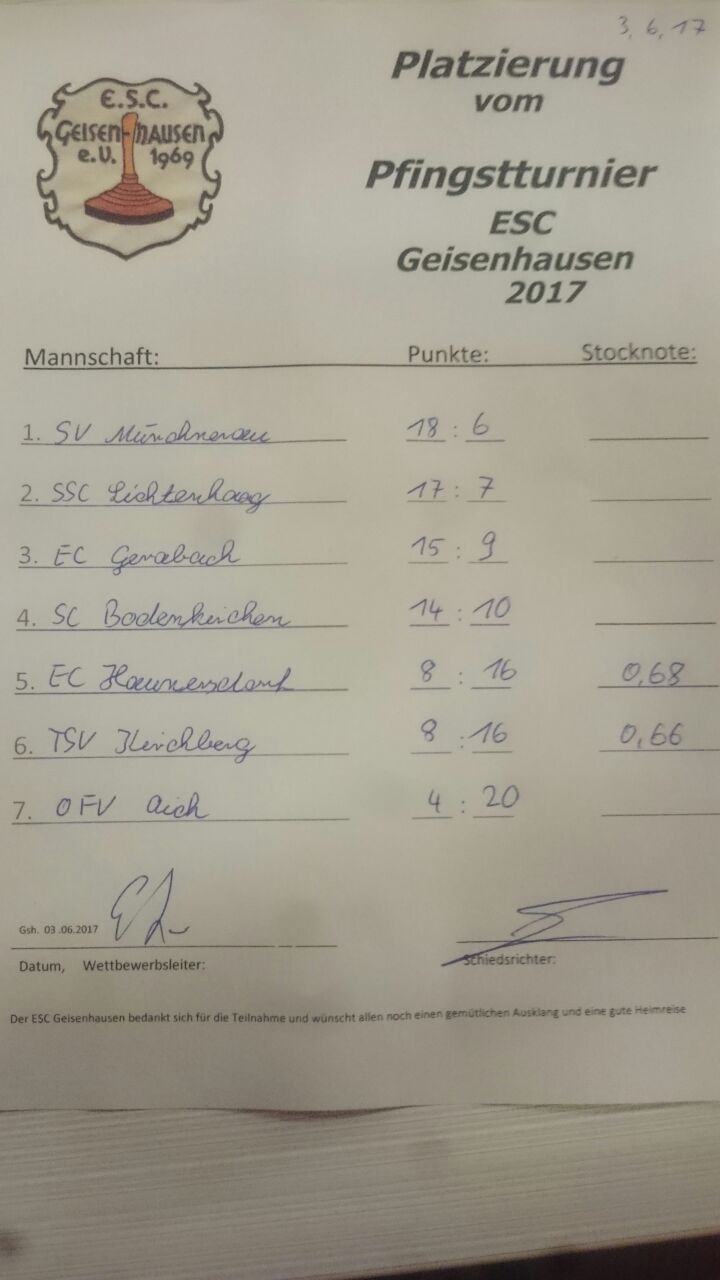 3. 6. 17
E.S.C.
GEISENHAUSEN
e.V. 1969
Platzierung
vom
Pfingstturnier
ESC
Geisenhausen
2017
Mannschaft: Punkte: Stocknote:
1. SV Münchnerau 18 : 6
2. SSC Lichtenhaag 17 : 7
3. EC Gerabach 15 : 9
4. SC Bodenkirchen 14 : 10
5. EC Haunersdorf 8 : 16 0,68
6. TSV Kirchberg 8 : 16 0,66
7. OFV Aich 4 : 20
Gsh. 03.06.2017
Datum, Wettbewerbsleiter: Schiedsrichter:
Der ESC Geisenhausen bedankt sich für die Teilnahme und wünscht allen noch einen gemütlichen Ausklang und eine gute Heimreise